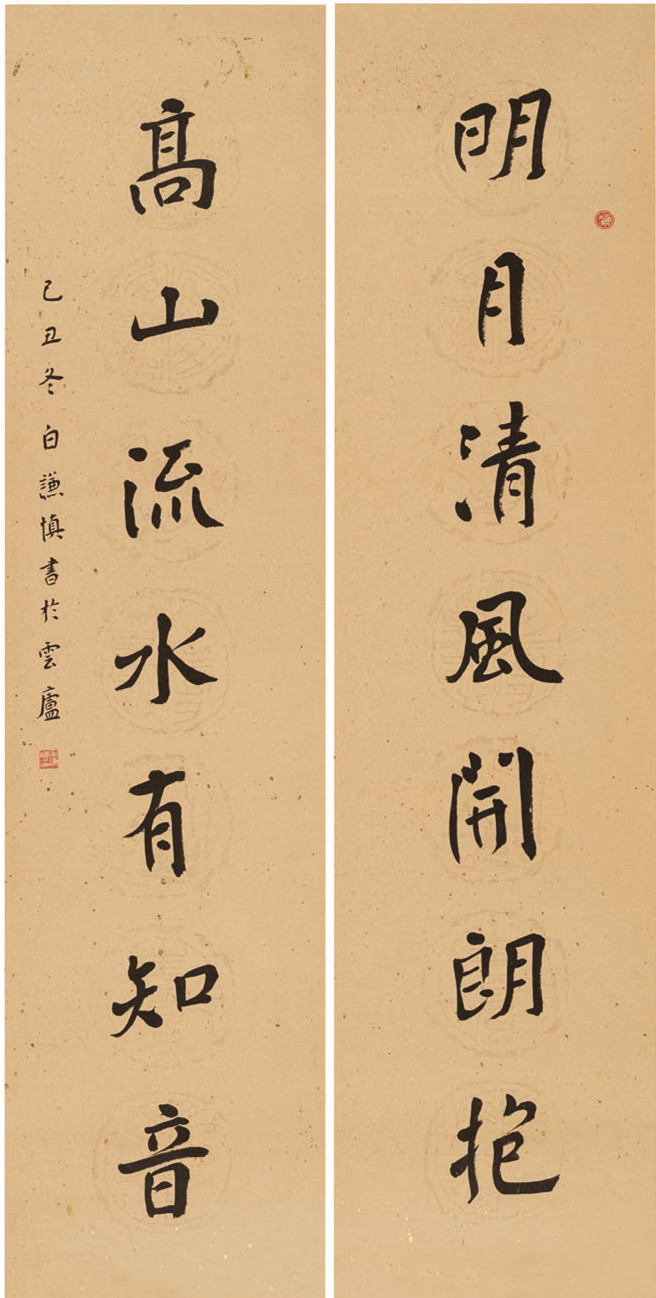 明月清風開朗抱
高山流水有知音
己丑冬白謙慎書於雲廬